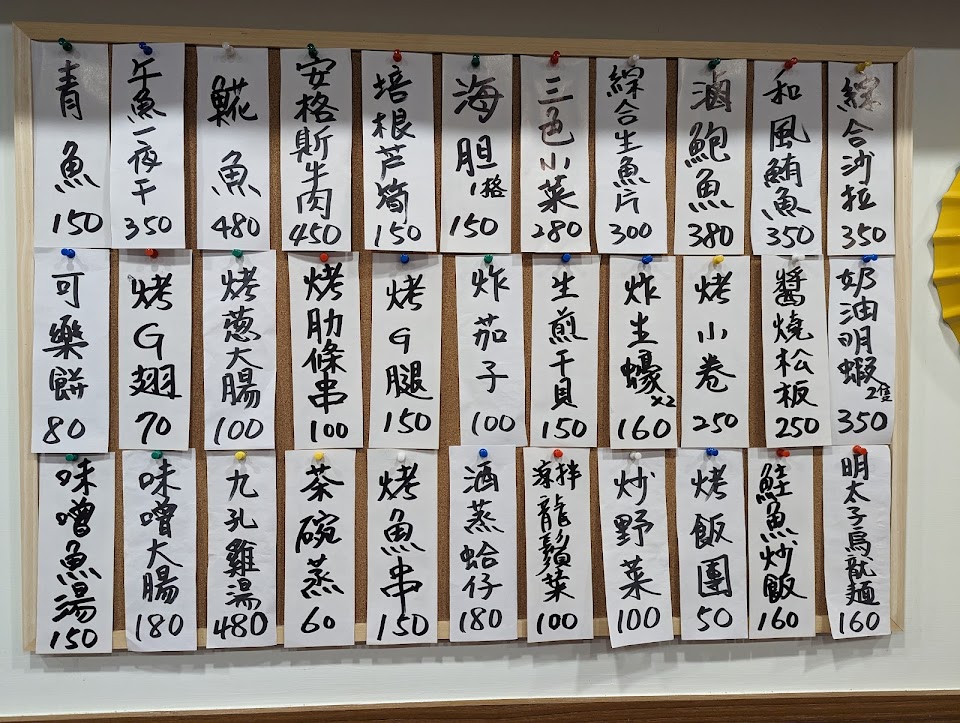 綜合沙拉 350
和風鮪魚 350
滷鮑魚 380
綜合生魚片 300
三色小菜 280
海胆 1格 150
培根芦筍 150
安格斯牛肉 450
䱀魚 480
午魚一夜干 350
青魚 150
奶油明蝦 2隻 350
醬燒松板 250
烤小卷 250
炸生蠔 x2 160
生煎干貝 150
炸茄子 100
烤G腿 150
烤肋條串 100
烤蔥大腸 100
烤G翅 70
可樂餅 80
明太子烏龍麵 160
鮭魚炒飯 160
烤飯團 50
炒野菜 100
涼拌龍鬚菜 100
酒蒸蛤仔 180
烤魚串 150
茶碗蒸 60
九孔雞湯 480
味噌大腸 180
味噌魚湯 150